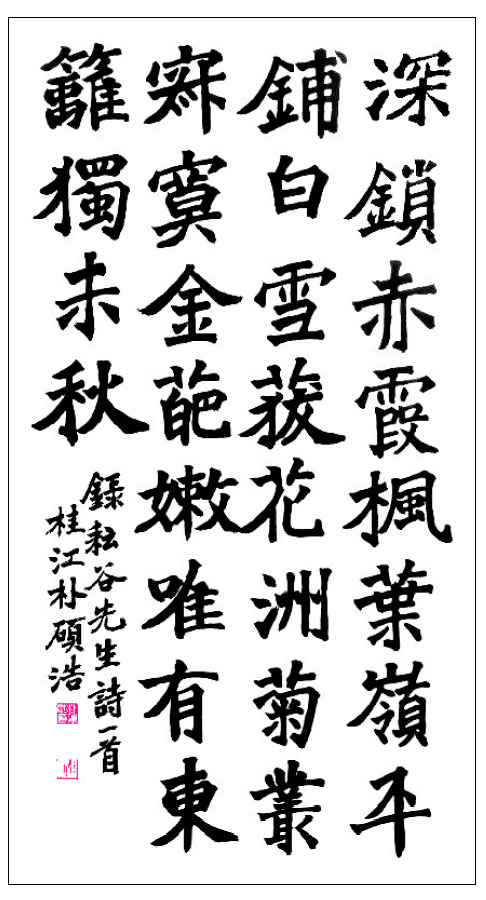 深鎖赤霞楓葉嶺平
鋪白雪荻花洲菊叢
寂寞金葩嫩唯有東
籬獨未秋
錄耘谷先生詩一首
桂江朴碩浩